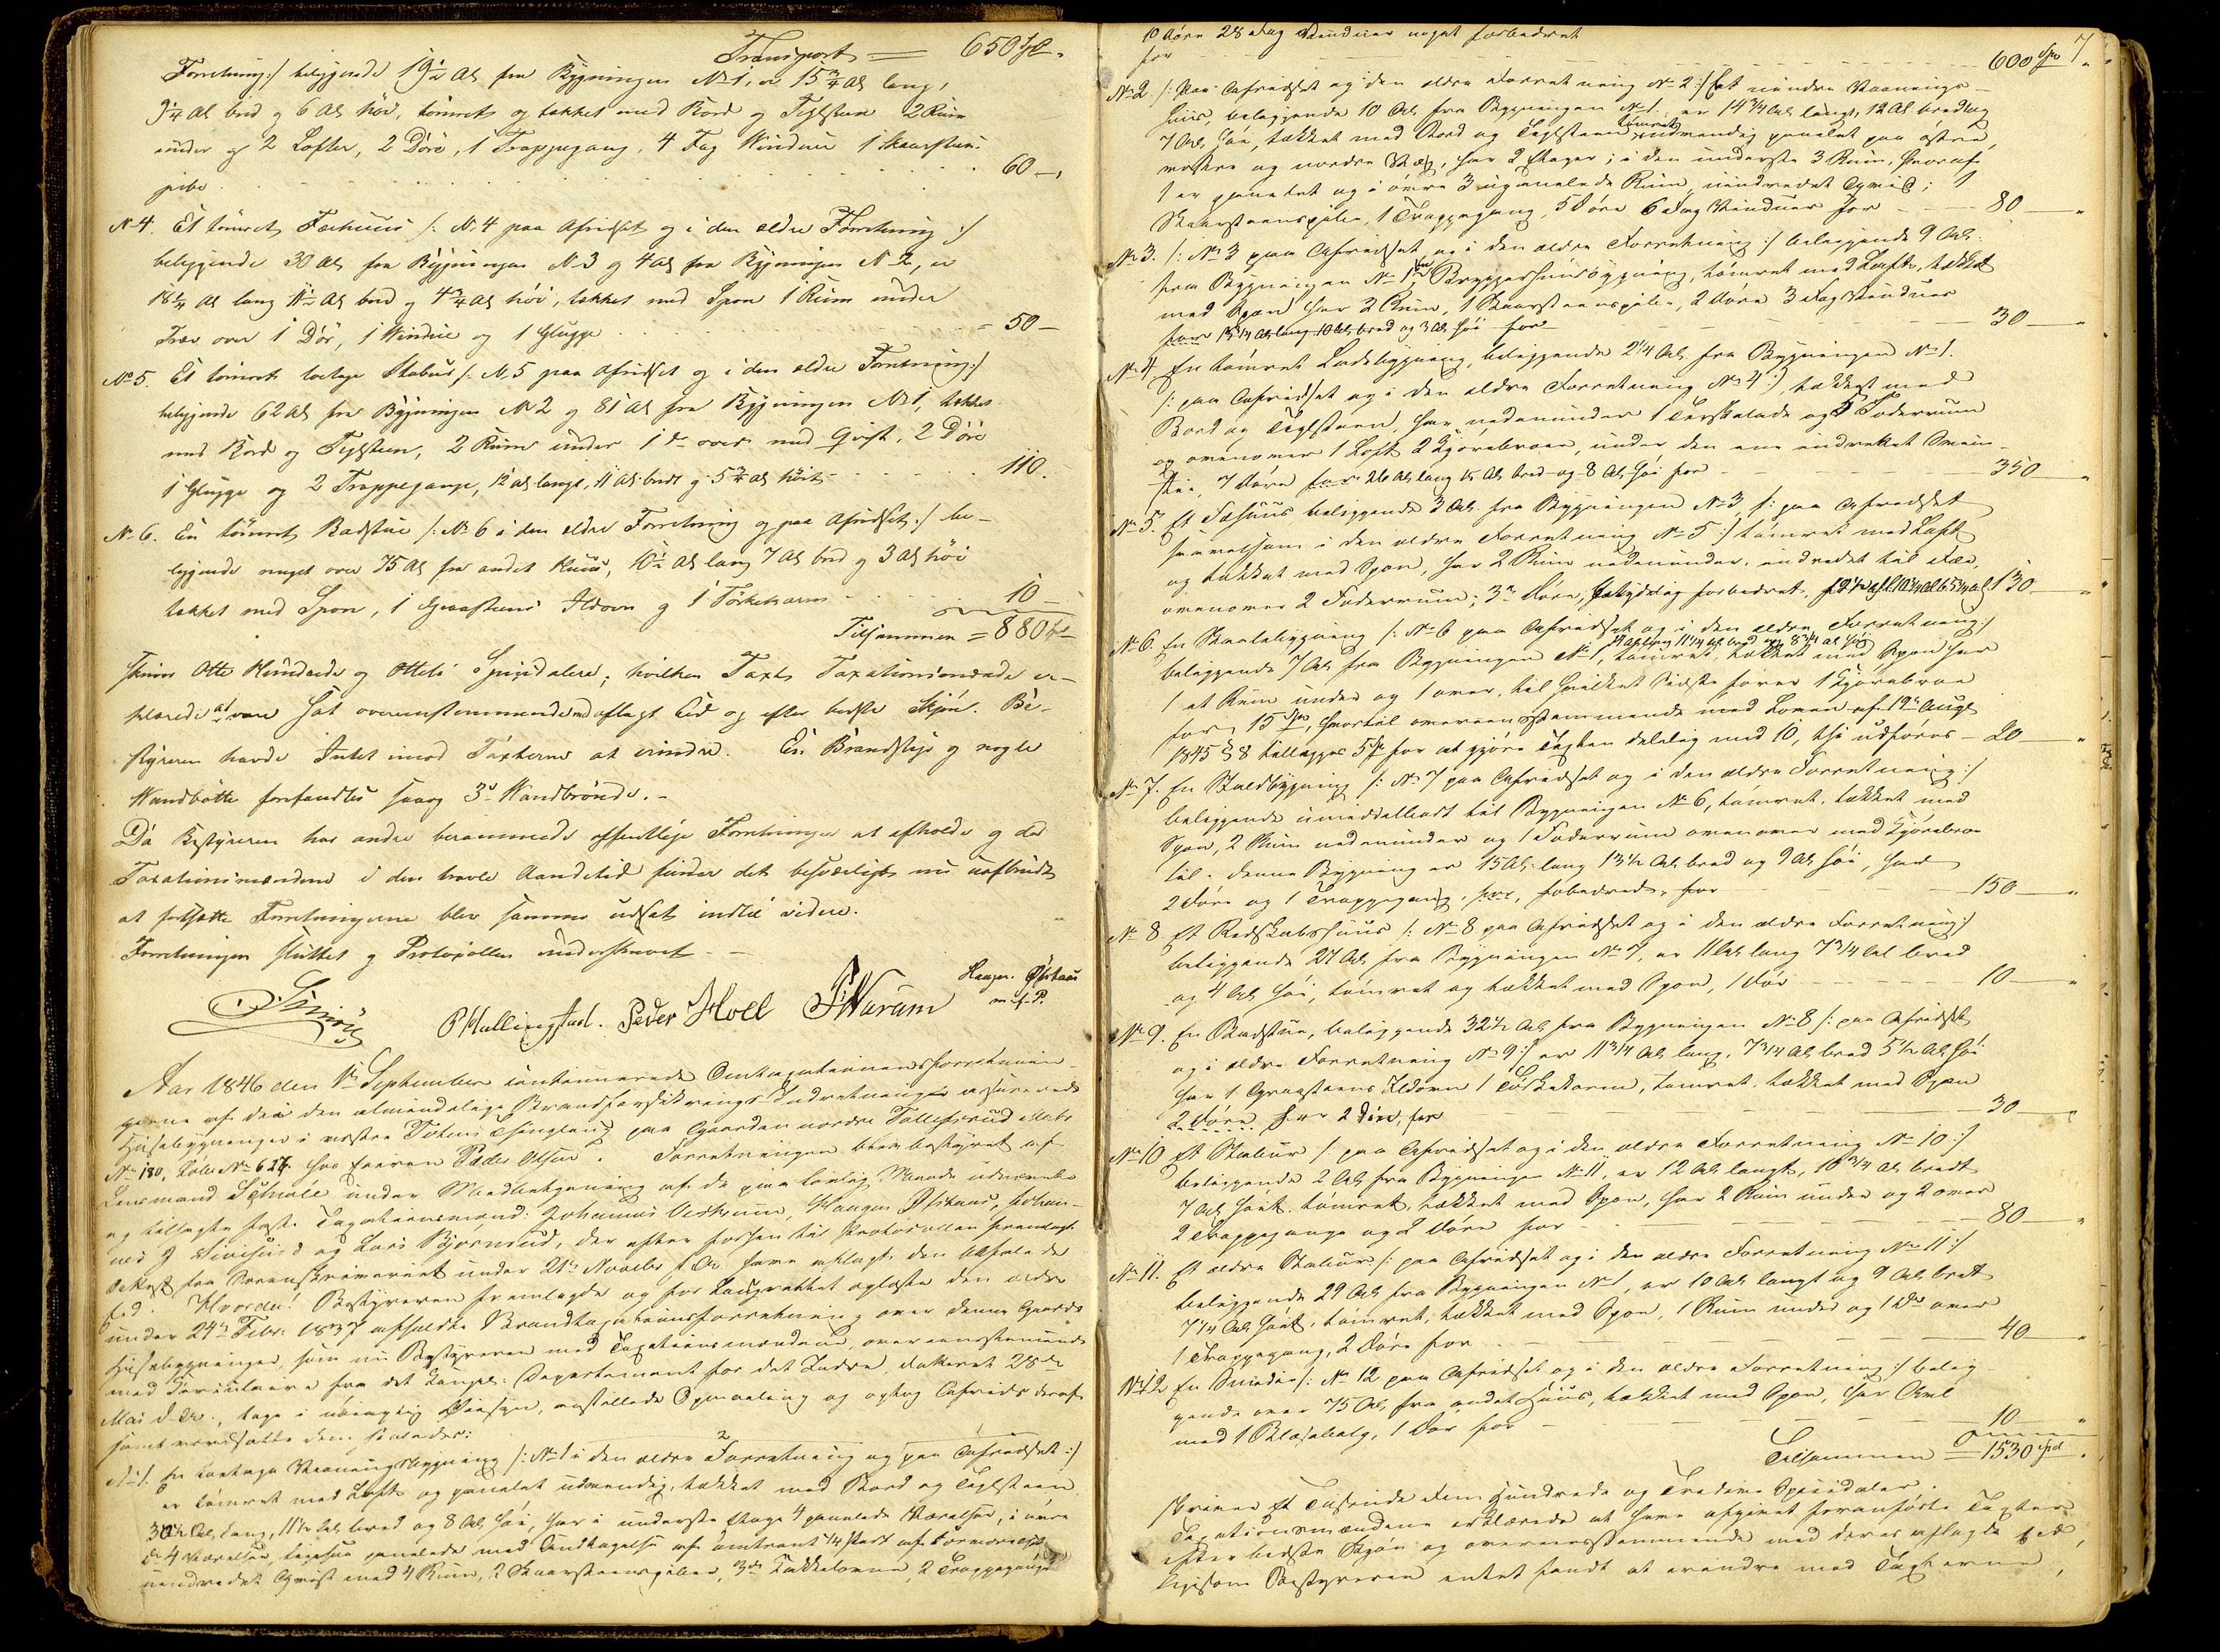 Transport = 650 Spd.
Forretning :/ beliggende 19½ Al. fra Bygningen No 1, er 15¾ Al lang,
9¼ Al bred og 6 Al høi, tømret og tækket med Bord og Teglsteen 2 Rum
under og 2 Lofter, 2 Døre, 1 Trappegang, 4 Fag Vinduer 1 Skaarsteens-
pibe 60 —
No 4. Et tømret Fæhuus /: No 4 paa Afridset og i den ældre Forretning :/
beliggende 30 Al. fra Bygningen No 3 og 4 Al fra Bygningen No 2, er
18¼ Al lang 11½ Al bred og 4¾ Al høi, tækket med Spon 1 Rum under
Træv over 1 Dør, 1 Vindue og 1 Glugge = 50 —
No 5. Et tømret toetages Stabur /: No 5 paa Afridset og i den ældre Forretning :/
beliggende 62 Al fra Bygningen No 2 og 81 Al fra Bygningen No 1, tækket
med Bord og Teglsteen, 2 Rum under 1 do over med Qvist, 2 Døre
1 Glugge og 2 Trappegange, 12 Al langt, 11 Al bredt og 5¾ Al høit 110.
No 6. En tømret Badstue /: No 6 i den ældre Forretning og paa Afridset :/ be-
liggende meget over 75 Al fra andet Huus, 10½ Al lang 7 Al bred og 3 Al høi
tækket med Spon, 1 Graasteens Ildovn og 1 Tørkekarm 10 —
Tilsammen = 880 Spd
skriver Otte Hundrede og Otteti Speciedaler; hvilken Taxt Taxationsmændene er-
klærede at være sat overensstemmende med aflagt Eed og efter bedste Skjøn. Be-
styreren havde Intet imod Taxterne at erindre. En Brandstige og nogle
Vandbøtter forefandtes samt 3 Vandbrønde. –
Da Bestyreren har andre berammede offentlige Forretninger at afholde og da
Taxationsmændene i den travle Aandetid finder det besværligt nu uafbrudt
at fortsætte Forretningerne blev samme udsat indtil videre.
Forretningen sluttet og Protocollen underskrevet –
P Hallingstad. Peder Hoel Haagen Østhaus
m. f. P.
Aar 1846 den 1ste September continuerede Omtaxationsforretnin-
gerne af de i den almindelige Brandforsikrings-Indretning assurerede
Huusebygninger i vestre Totens Thinglaug paa Gaarden nordre Tollefsrud Matr.
No 180, Løbe No 627. hos Eieren Peder Olsen. Forretningen blev bestyret af
Lensmand under Medbetjening af de paa lovlig Maade udnævnte
og tilsagte faste Taxationsmænd: Johannes Haagen Østhaus, Johan-
nes og Lars Bjørnerud, der efter forhen til Protocollen fremlagt
Attest fra Sorenskriveriet under 21de Novbr f. A. have aflagt den befalede
Eed. Hvorda! Bestyreren fremlagde og for Laugrettet oplæste den ældre
under 24de Febr. 1837 afholdte Brandtaxationsforretning over denne Gaards
Huusebygninger, som nu Bestyreren med Taxationsmændene, overensstemmende
med Circulaire fra det Kongel: Departement for det Indre dateret 28de
Mai d. A., toge i nøiagtig Øiesyn, anstillede Opmaaling og optog Afrids deraf
samt værdsatte dem saaledes:
No 1. En toetages Vaaningsbygning /: No 1 i den ældre Forretning og paa Afridset :/
er tømret med Loft og panelet udvendig, tækket med Bord og Teglsteen
30½ Al. lang, 11½ Al. bred og 8 Al. høi, har i underste Etage 4 panelede Værelser, i øvre
do 4 Værelser, ligesaa panelede med Undtagelse af omtrent ¼ Part af Værelset
uindredet Qvist med 4 Rum, 2 Skaarsteenspiber, 3de Kakkelovne, 2 Trappegange
7
10 Døre 28 Fag Vinduer noget forbedret
for 600 Spd
No 2. /: Paa Afridset og i den ældre Forretning No 2 :/ Et mindre Vaanings-
huus, beliggende 10 Al. fra Bygningen No 1 er 14¾ Al. langt, 12 Al. bredt og
7 Al. høi, tækket med Bord og Teglsteen tømret udvendig panelet paa østre,
vestre og nordre Væg, har 2 Etager; i den underste 3 Rum, hvoraf
1 er panelet og i øvre 3 upanelede Rum, uindredet Qvist; 1
Skaarsteenspibe, 1 Trappegang, 5 Døre 6 Fag Vinduer for 80 —
No 3. /: No 3 paa Afridset og i den ældre Forretning :/ beliggende 9 Al.
fra Bygningen No 1, en Bryggerhuusbygning, tømret med Loft, tækket
med Spon har 2 Rum, 1 Skaarsteenspibe, 2 Døre 3 Fag Vinduer
for 13¾ Al. lang 10 Al. bred og 3 Al. høi for 30 —
No 4. En tømret Ladebygning, beliggende 21¼ Al. fra Bygningen No 1.
/: paa Afridset og i den ældre Forretning No 4 :/, tækket med
Bord og Teglsteen, har nedenunder 1 Tærskelade og 5 Foderrum
og ovenover 1 Loft 2 Kjørebroer, under den ene indredet Sviin-
stie, 7 Døre for 26 Al. lang 15 Al. bred og 8 Al. høi for 350 —
No 5. Et Fæhuus beliggende 3 Al. fra Bygningen No 3 /: paa Afridset
saavelsom i den ældre Forretning No 5 :/ tømret med Loft
og tækket med Spon, har 2 Rum nedenunder, indredet til Fæe,
ovenover 2 Foderrum; 3de Døre, betydelig forbedret, 130 —
No 6. En Skaalebygning /: No 6 paa Afridset og i den ældre Forretning :/
beliggende 7 Al. fra Bygningen No 1, 11¼ Al. bred og 8¾ Al. høi tømret, tækket med Spon har
1 et Rum under og 1 over, til hvilket Sidste fører 1 Kjørebroe
for 15 Spd, hvortil overeensstemmende med Loven af 19de Augt
1845 § 8 tillægges 5 Spd for at gjøre Taxten delelig med 10, thi udføres — 20 —
No 7. En Staldbygning /: No 7 paa Afridset og i den ældre Forretning :/
beliggende umiddelbart til Bygningen No 6, tømret, tækket med
Spon, 2 Rum nedenunder og 1 Foderrum ovenover med Kjørebroe
til. Denne Bygning er 15 Al. lang 13½ Al. bred og 9 Al. høi, har
2 Døre og 1 Trappegang, forbedret, for 150 —
No 8. Et Redskabshuus /: No 8 paa Afridset og i den ældre Forretning :/
beliggende 27 Al. fra Bygningen No 7, er 11 Al. lang 7¾ Al. bred
og 4 Al. høi, tømret og tækket med Spon, 1 Dør 10 —
No 9. En Badstue, beliggende 32½ Al. fra Bygningen No 8 /: paa Afridset
og i ældre Forretning No 9 :/ er 11¾ Al. lang, 7¾ Al. bred 5½ Al. høi
har 1 Graasteens Ildovn 1 Tørkekarm, tømret, tækket med Spon
2 Døre, for 30 —
No 10 Et Stabur /: paa Afridset og i den ældre Forretning No 10 :/
beliggende 2 Al. fra Bygningen No 11, er 12 Al. langt, 10¾ Al. bredt
7 Al. høit, tømret, tækket med Spon, har 2 Rum under og 2 over
2 Trappegange og 2 Døre for 80 —
No 11. Et ældre Stabur /: paa Afridset og i den ældre Forretning No 11 :/
beliggende 29 Al. fra Bygningen No 1, er 10 Al. langt og 9 Al. bredt
7¼ Al. høit, tømret, tækket med Spon, 1 Rum under og 1 Do over
1 Trappegang, 2 Døre for 40 —
No 12 En Smedie /: No 12 paa Afridset og i den ældre Forretning :/ belig-
gende over 75 Al. fra andet Huus, tækket med Spon, har Avl
med 1 Blæsebælg, 1 Dør for 10 —
Tilsammen = 1530 Spd.
skriver Et Tusinde Fem Hundrede og Tredive Speciedaler.
Taxationsmændene erklærede at have afgivet foranførte Taxter
efter bedste Skjøn og overeensstemmende med deres aflagte Eed,
ligesom Bestyreren intet fandt at erindre mod Taxterne,